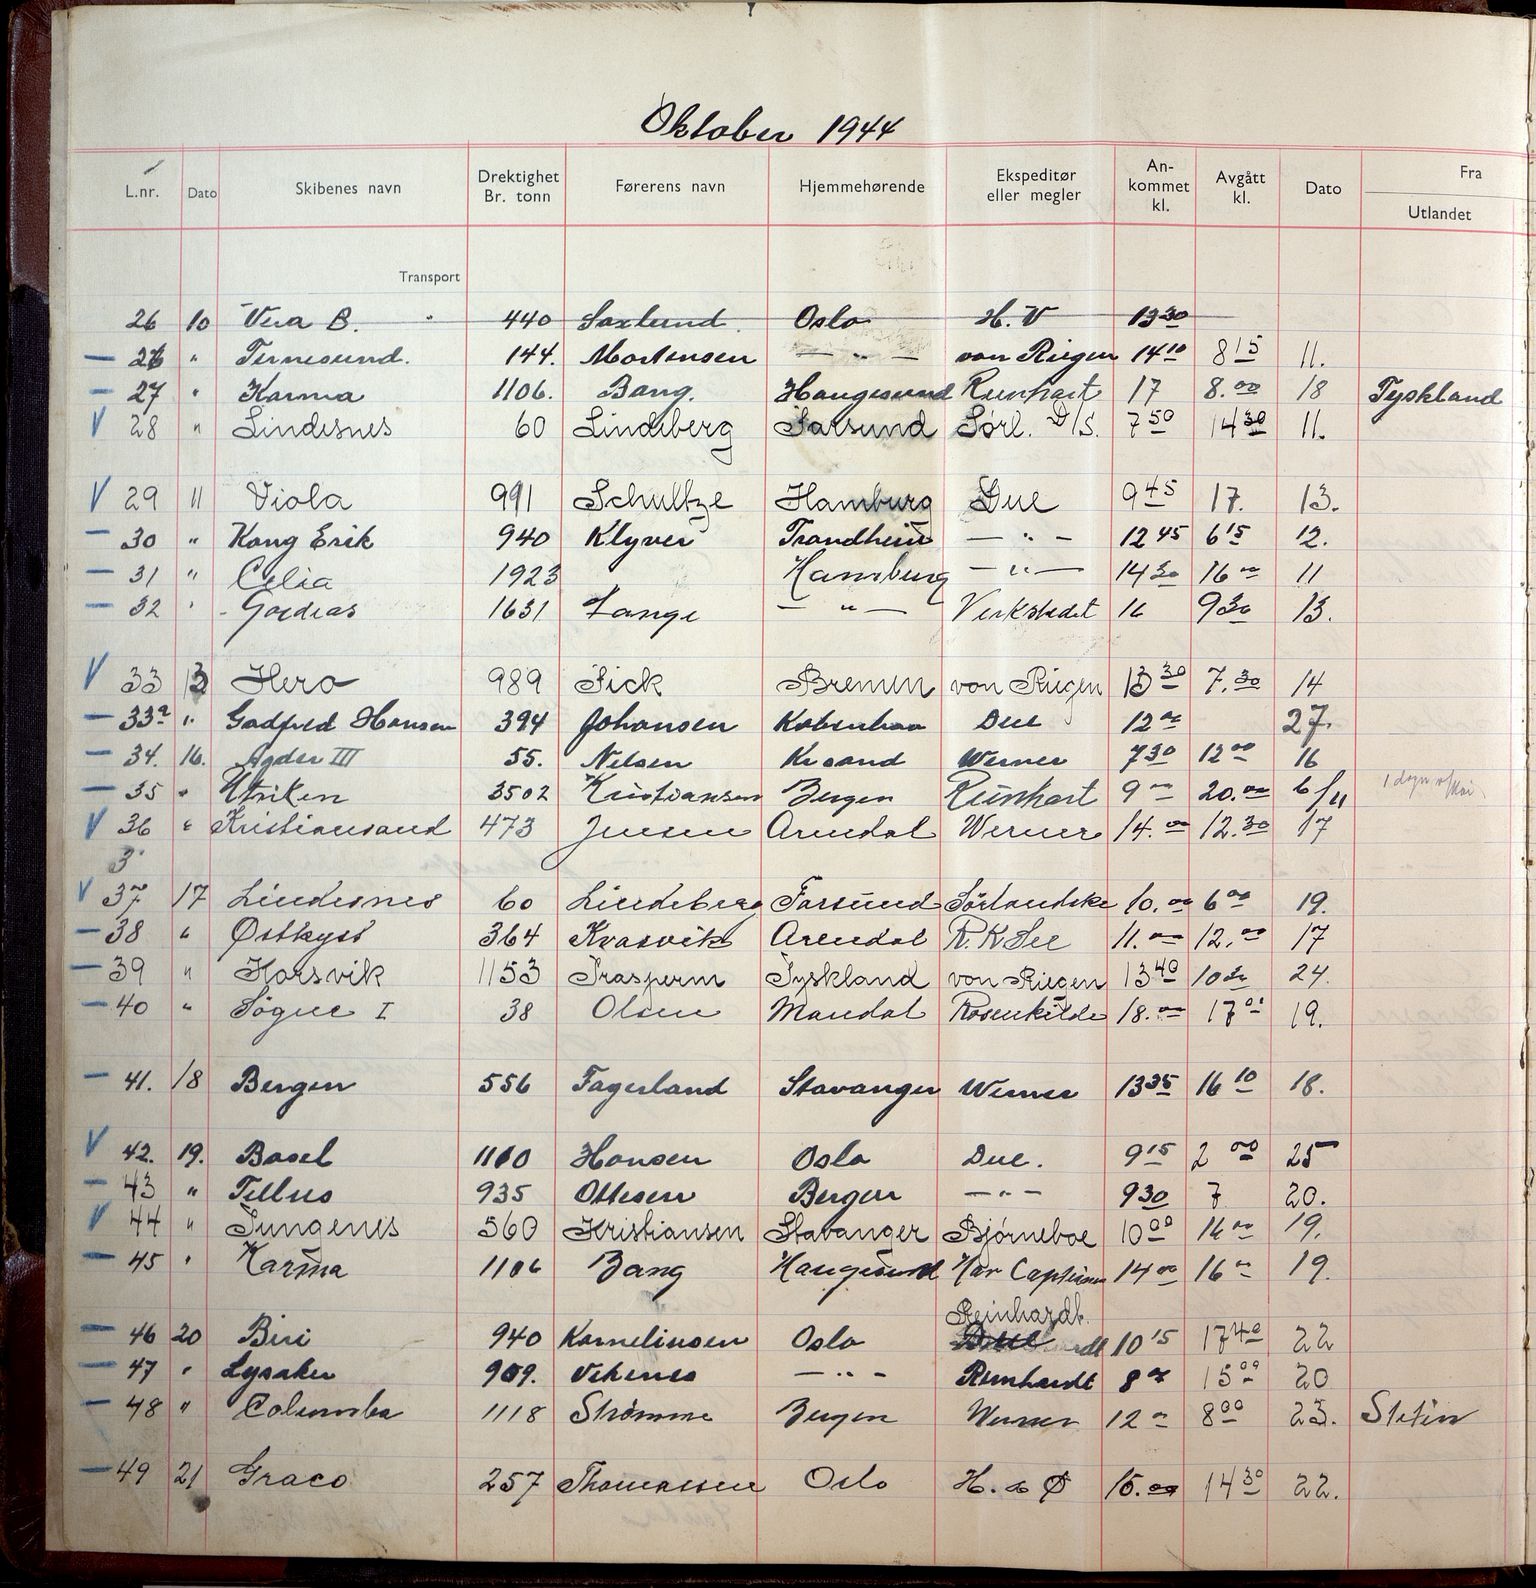 Oktober 1944
L.nr. Dato Skibenes navn Drektighet Br. tonn Førerens navn Hjemmehørende Ekspeditør eller megler An-kommet kl. Avgått kl. Dato Fra Utlandet
Transport
26 10 Vera B. 440 Saxlund Oslo H. V 13 30
26 " Ternesund. 144. Mortensen — " — von Riegen 14 10 8 15 11.
27 " Karma 1106. Bang. Haugesund Reinhart 17 8.00 18 Tyskland
V 28 " Lindesnes 60 Lindeberg Farsund Sørl. D/S. 7 50 14 30 11.
V 29 11 Viola 991 Schultze Hamburg Due 9 45 17. 13.
30 " Kong Erik 940 Klyver Trondheim — " — 12 45 6 15 12.
31 " Celia 1923 Hamburg — " — 14 30 16 00 11
32 " Gordias 1631 Lange — " — Verkstedet 16 9 30 13.
V 33 13 Hero 989 Sick Bremen von Riegen 13 30 7.30 14
33a " Godfred Hansen 394 Johansen Københav Due 12 00 27.
34. 16. Agder III 55. Nelsen Krsand Werner 7 30 12 00 16
35 " Ulriken 3502 Kristiansen Bergen Reinhart 9 00 20.00 6/11 1 døgn v/kai
V 36 " Kristiansand 473 Jensen Arendal Werner 14.00 12.30 17
3
V 37 17 Lindesnes 60 Lindeberg Farsund Sørlandske 10.00 6 00 19.
38 " Østkyst 364 Kvasvik Arendal R.K See 11.00 12.00 17
39 " Korsvik 1153 Trasperm Tyskland von Riegen 13 40 10 30 24.
40 " Søgne I 38 Olsen Mandal Rosenkilde 18.00 17 00 19.
41. 18 Bergen 556 Fagerland Stavanger Werner 13 35 16 10 18.
V 42. 19. Basel 1110 Hansen Oslo Due. 9 15 2 00 25
43 " Tellus 935 Ottesen Bergen — " — 9 30 7 20.
V 44 " Tungenes 560 Kristiansen Stavanger Bjørneboe 10 00 16 00 19.
45 " Karma 1106 Bang Haugesund Hav Capteinen 14 00 16 00 19.
Reinhardt.
46 20 Biri 940 Kornelinsen Oslo Due 10 15 17 40 22
47 " Lysaker 909. Vekenes — " — Reinhardt 8 00 15 00 20
48 " Columba 1118 Strømme Bergen Werner 12 00 8 00 23. Stetin
49 21 Graco 257 Thomassen Oslo H. & Ø 15.00 14 30 22.